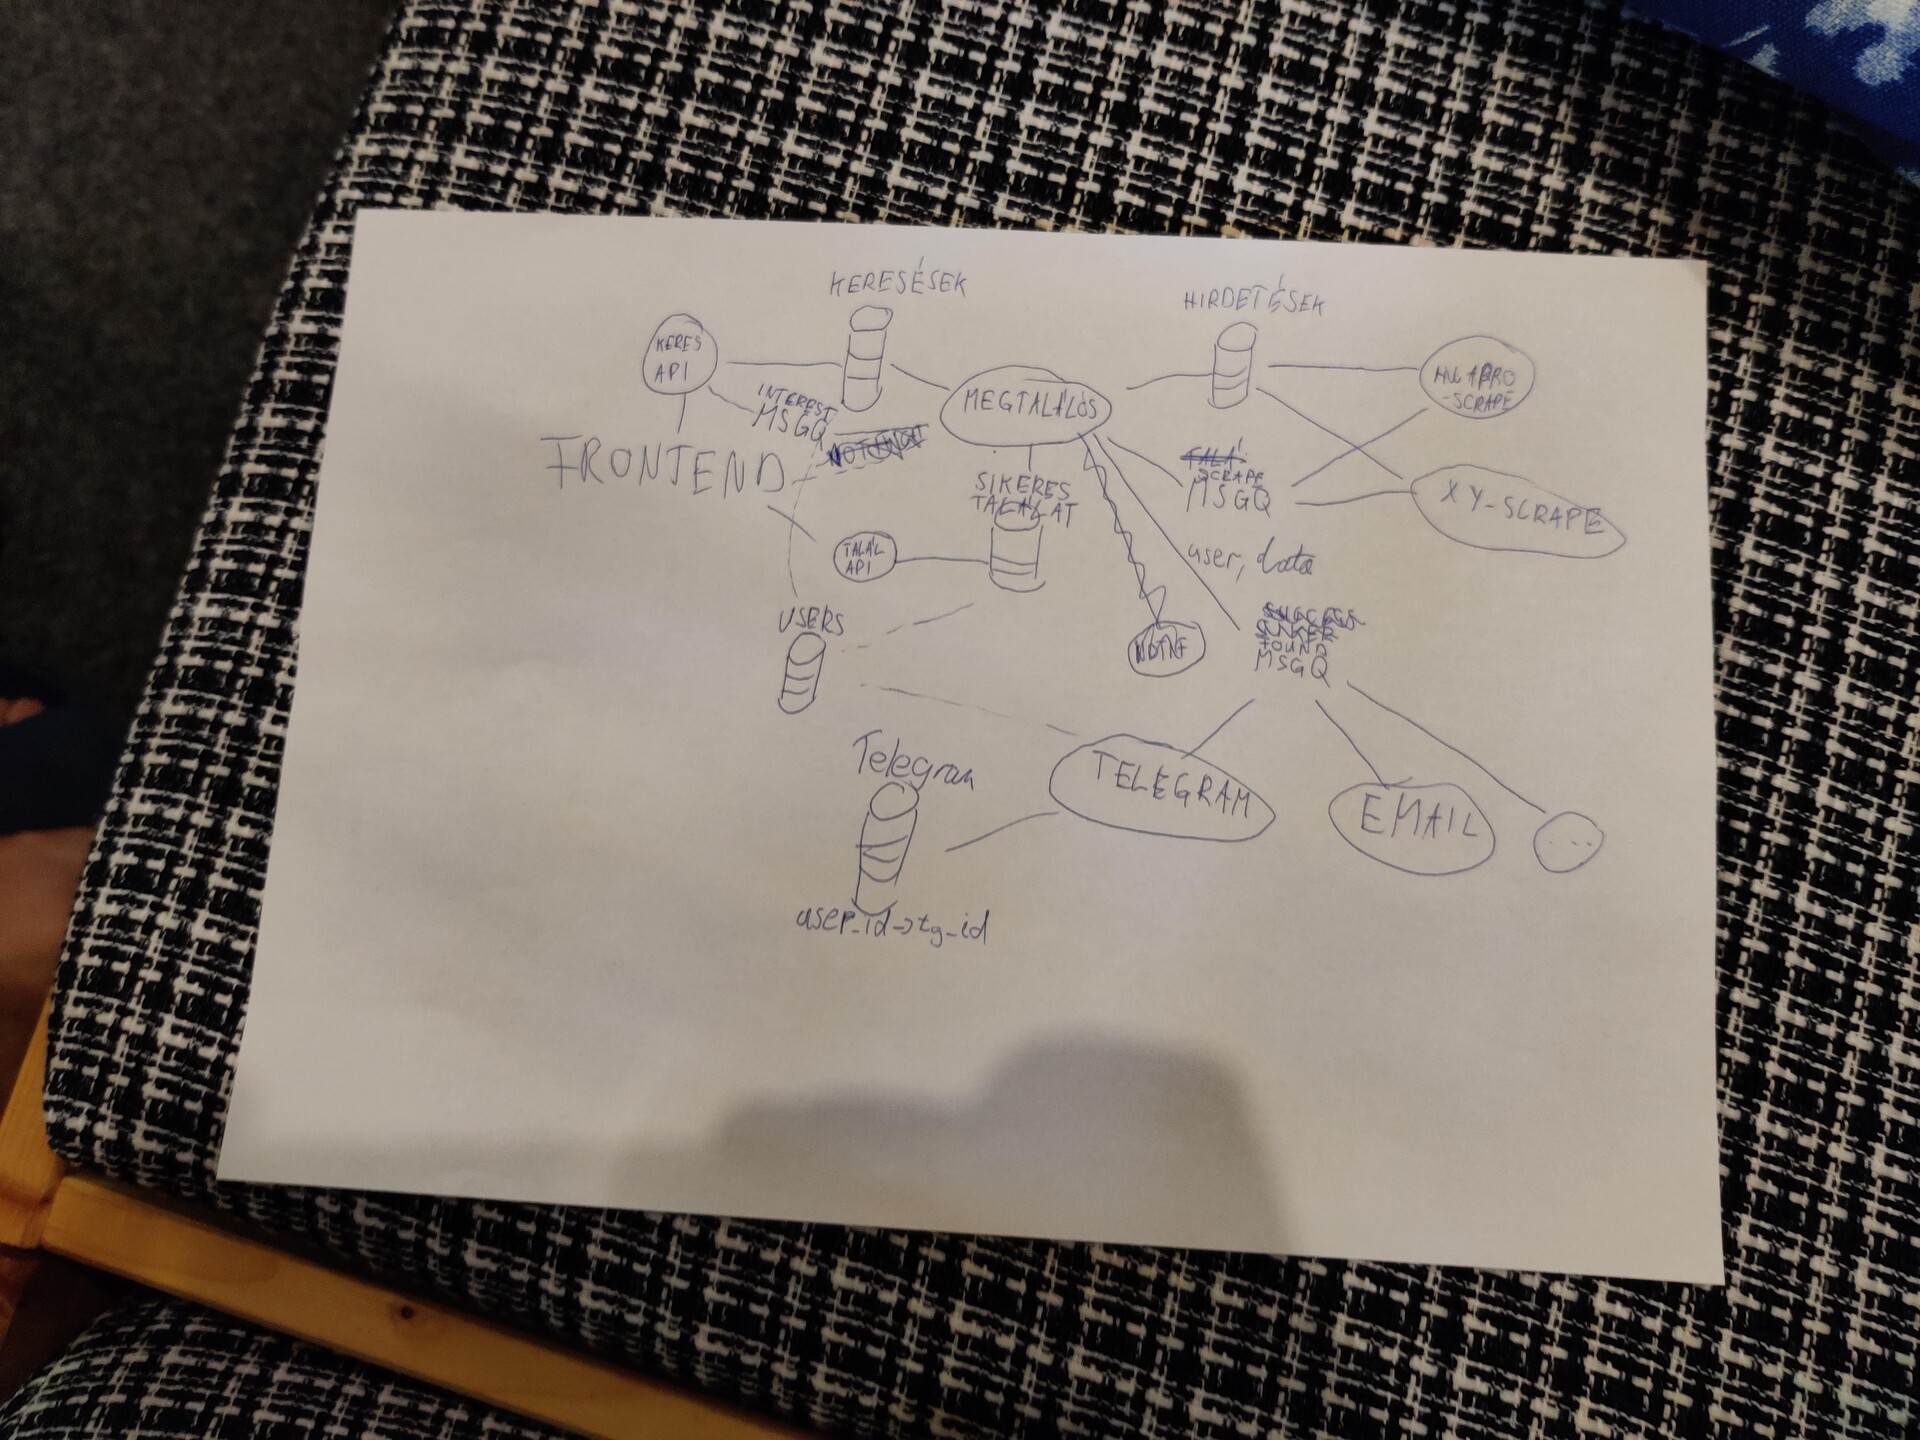 KERESÉSEK
HIRDETÉSEK
KERES
API
INTEREST
MSGQ
MEGTALÁLÓS
-SCRAPE
FRONTEND
SIKERES
TALÁLAT
SCRAPE
MSGQ
XY-SCRAPE
TALÁL
API
user, data
USERS
FOUND
MSGQ
Telegram
TELEGRAM
EMAIL
...
user_id->tg_id